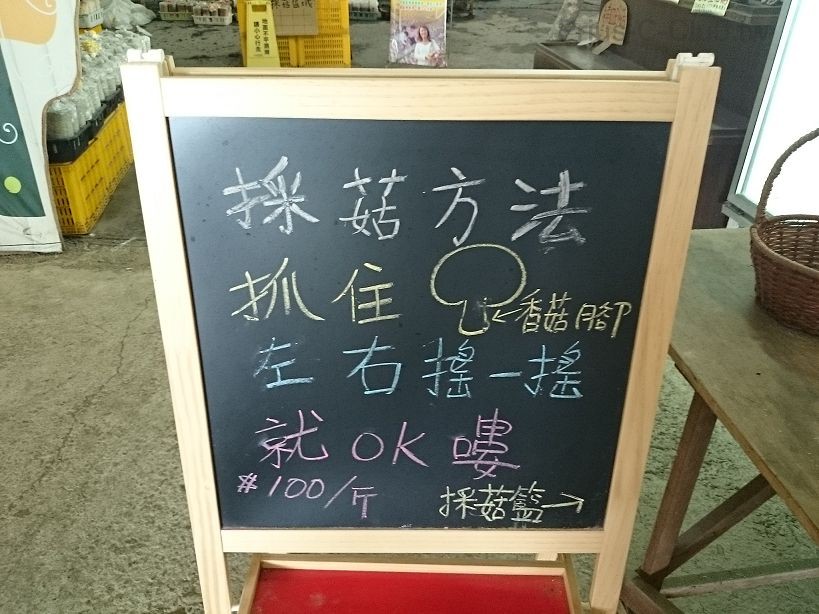 採菇方法
抓住 ←香菇腳
左右搖一搖
就OK嘍
#100/斤
採菇籃→